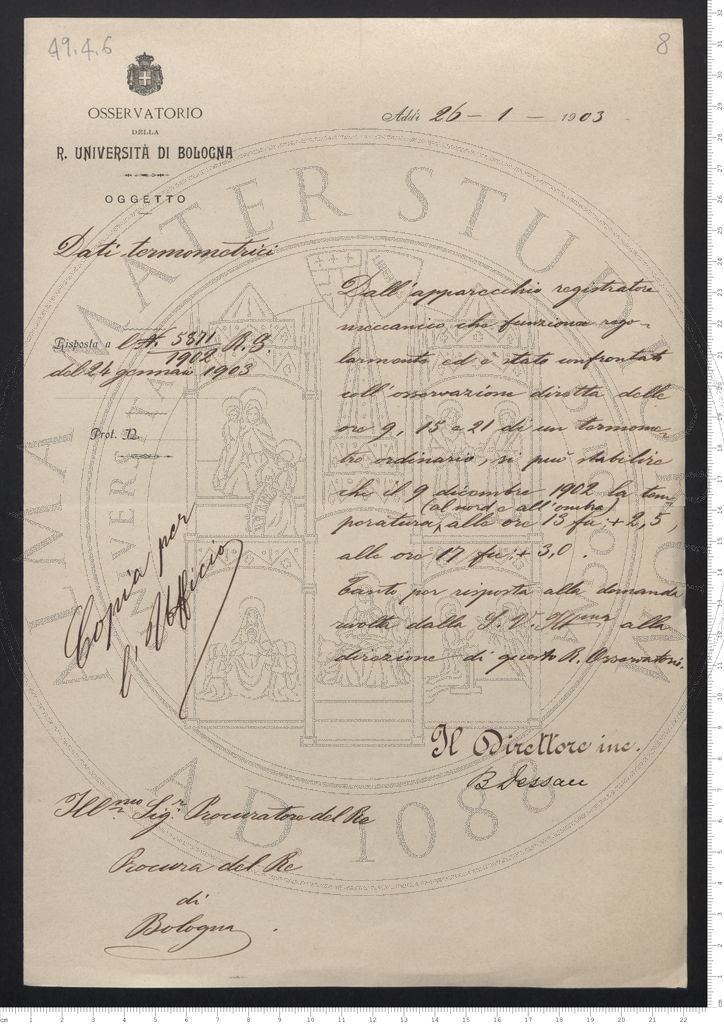 49.4.6
8
OSSERVATORIO
DELLA
R. UNIVERSITÀ DI BOLOGNA
OGGETTO
Addì 26 - 1 - 1903
Dati termometrici
Risposta a l N. 5371/1902 R. G.
del 24 gennaio 1903
Prot. N.
Copia per
l'Ufficio
Dall'apparecchio registratore
meccanico che funziona rego-
larmente ed è stato confrontato
coll'osservazione diretta delle
ore 9, 15 e 21 di un termome-
tro ordinario, si può stabilire
che il 9 dicembre 1902 la tem-
(al nord e all'ombra)
peratura, alle ore 13 fu + 2,5,
alle ore 17 fu + 3,0.
Tanto per risposta alla domanda
rivolta dalla S. V. Ill.ma alla
direzione di questo R. Osservatorio.
Il Direttore inc.
B Dessau
Ill.mo Sig.r Procuratore del Re
Procura del Re
di
Bologna.
ALMA MATER STUDIORUM
A.D. 1088